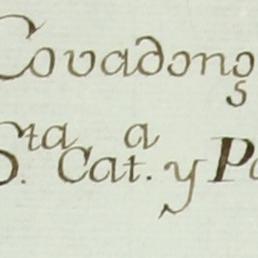 Covadong
Sta. Cat.a y P